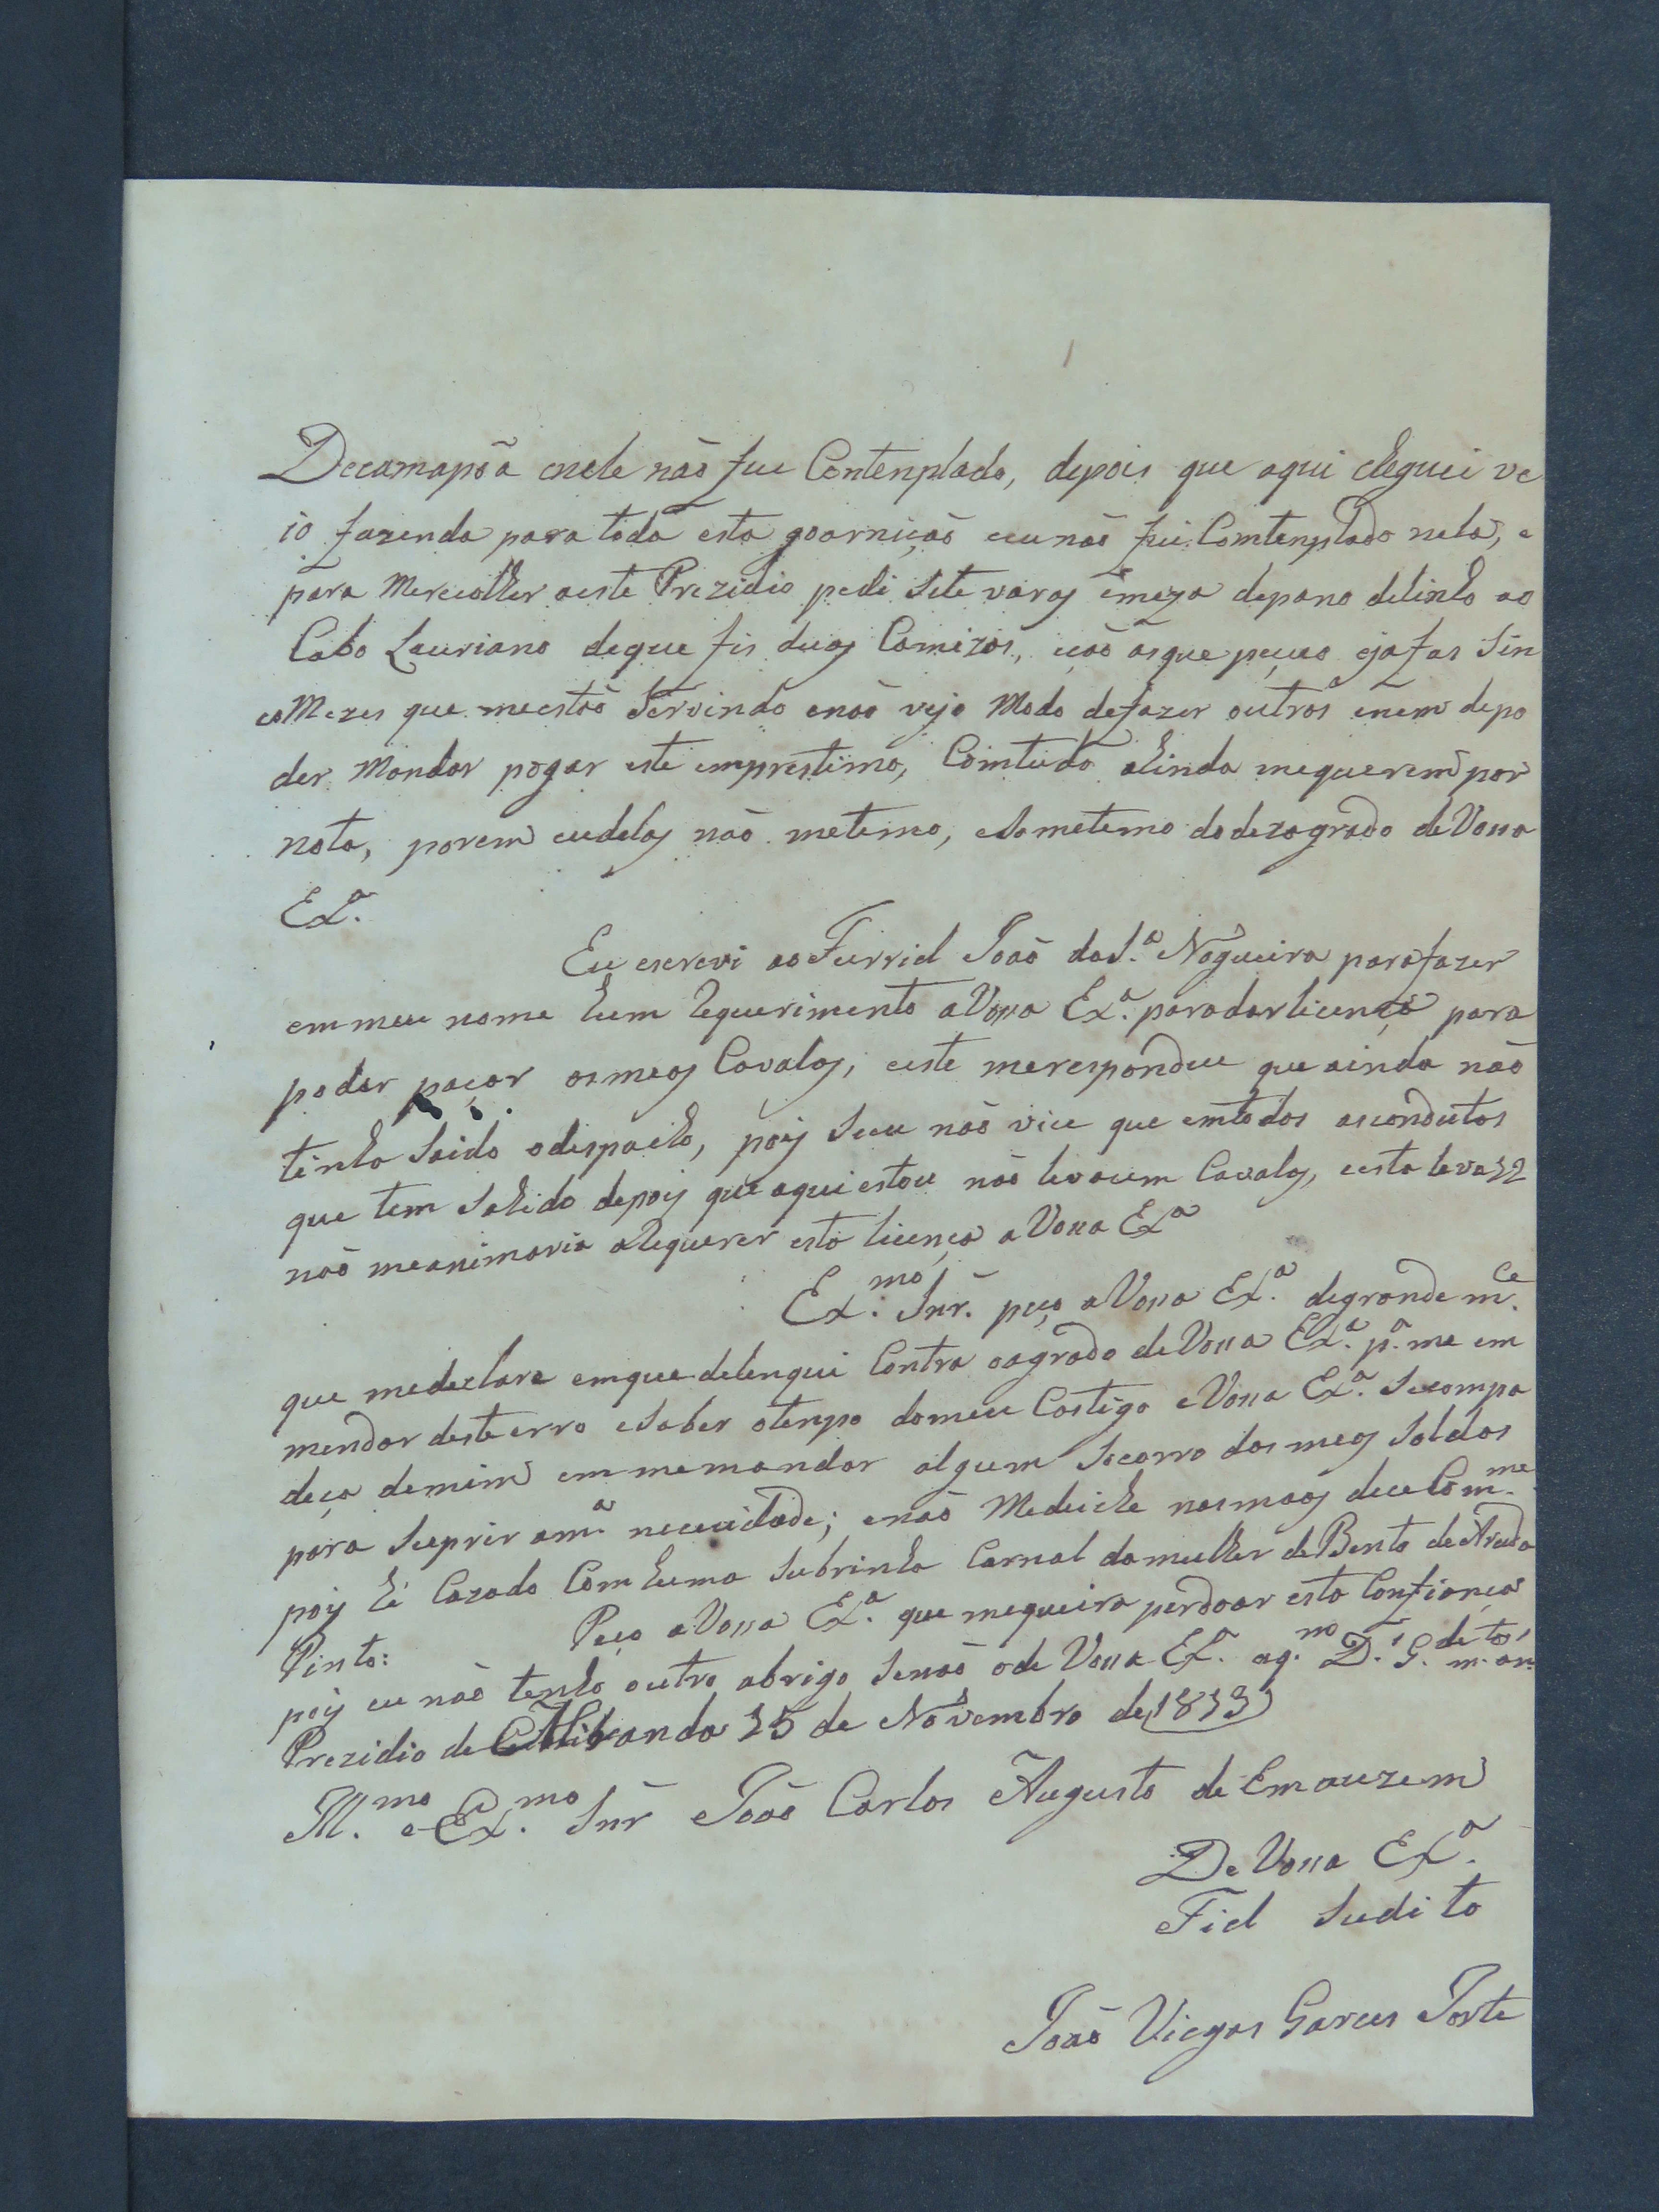 Decamapoã onde não fui Contenplado, depois que aqui cheguei ve
io fazenda para toda esta goarnição eeu não fui Comtenplado nela, e
para Mereculher aeste Prezidio pedi Sete varas emeza depano delinho ao
Cabo Lauriano deque fis duas Comizas, eção asque peçuo ejafas Sin
co Mezes que meestão Servindo enão vejo Modo defazer outras enem depo
der Mandar pagar este emprestimo, Comtudo ahinda mequerem por
nota, porem eudelas não metemo, eSo metemo do dezagrado de Vossa
Ex.ª
Eu escrevi ao Furriel João da S.ª Nogueira parafazer
em meu nome hum Requerimento a Vossa Ex.ª paradarlicença para
poder paçar os meos Cavalos, eeste merespondeu que ainda não
tinha Saido odispacho, pois Seeu não vice que emtodas ascondutas
que tem Sahido depois que aqui estou não levacem Cavalos, eesta leva 12
não meanimaria aRequerer esta licença a Vossa Exª
Ex.mo Snr. peço a Vossa Ex.ª degrande m.ce
que medeclare emque delenqui Contra oagrado de Vossa Ex.ª p.ª me em
mendar desteerro eSaber otenpo domeu Castigo e Vossa Ex.ª Secompa
deça demim em memandar algum Socorro dos meos Soldos
para Suprir am.ª necesidade; enão Medeiche nasmãos dece Com.me
pois hé Cazado Com huma Subrinha Carnal damulher de Bento de Aruda
Pinto: Peço a Vossa Ex.ª que mequeira perdoar esta Confiança
pois eu não tenho outro abrigo Senão ode Vossa Ex.ª aq.mo D.s G.de m.tos an.s
Prezidio de Miranda 15 de Novembro de 1813
Ill.mo e Ex.mo Snr João Carlos Augusto de Emauzem
De Vossa Ex.ª
Fiel Sudito
João Viegas Garces Forte